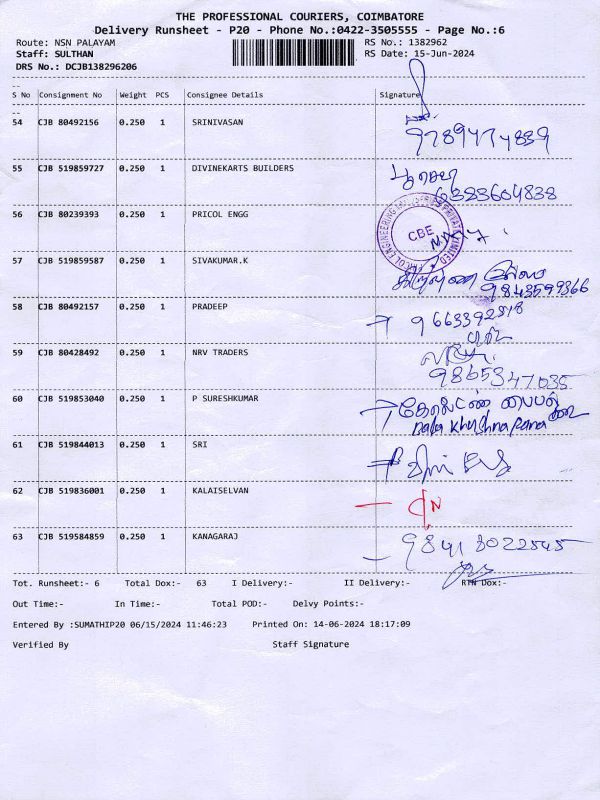 THE PROFESSIONAL COURIERS, COIMBATORE
Delivery Runsheet - P20 - Phone No.:0422-3505555 - Page No.:6
Route: NSN PALAYAM RS No.: 1382962
Staff: SULTHAN RS Date: 15-Jun-2024
DRS No.: DCJB138296206
S No Consignment No Weight PCS Consignee Details Signature
54 CJB 80492156 0.250 1 SRINIVASAN
9789474839
55 CJB 519859727 0.250 1 DIVINEKARTS BUILDERS
6383604838
56 CJB 80239393 0.250 1 PRICOL ENGG
CBE
57 CJB 519859587 0.250 1 SIVAKUMAR.K
9843599366
58 CJB 80492157 0.250 1 PRADEEP
9663392518
59 CJB 80428492 0.250 1 NRV TRADERS
9865347035
60 CJB 519853040 0.250 1 P SURESHKUMAR
61 CJB 519844013 0.250 1 SRI
62 CJB 519836001 0.250 1 KALAISELVAN
63 CJB 519584859 0.250 1 KANAGARAJ
Tot. Runsheet:- 6 Total Dox:- 63 I Delivery:- II Delivery:- RTN Dox:-
Out Time:- In Time:- Total POD:- Delvy Points:-
Entered By :SUMATHIP20 06/15/2024 11:46:23 Printed On: 14-06-2024 18:17:09
Verified By Staff Signature